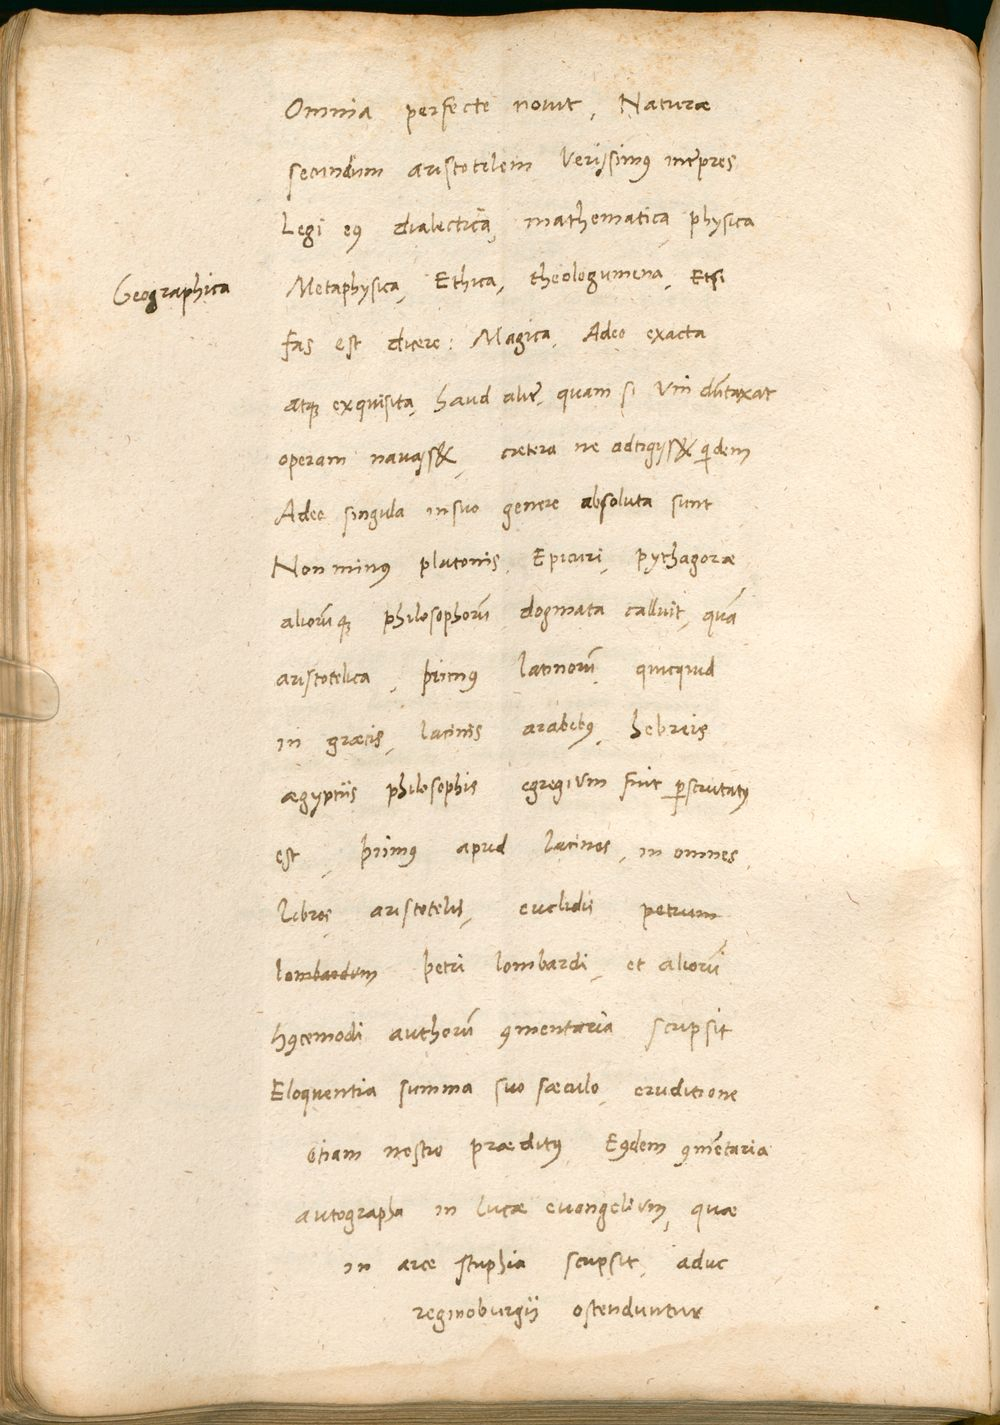 Omnia perfecte nouit, Naturæ
secundum aristotelem Verissimꝰ īterpres
Legi eꝰ dialectica, mathematica, physica
Geographica
Metaphysica, Ethica, theologumena, Etsi
fas est dicere: Magica. Adeo exacta
atqꝫ exquisita, haud alit̄, quam si Vni dūtaxat
operam nauasset, cætera ne adtigisset q̇dem
Adeo singula in suo genere absoluta sunt
Non minꝰ platonis, Epicuri, Pythagoræ
aliorūqꝫ philosophorū dogmata calluit, quā
aristotelica, primꝰ latinorū quicquid
in græcis, latinis arabibꝰ, hebreis
ægyptiis philosophis egregium fuit ꝑscrutatꝰ
est, primꝰ apud latinos, in omnes
libros aristotelis, euclidis petrum
lombardum petri lombardi, et aliorū
hꝰcemodi authorū ꝯmentaria scripsit
Eloquentia summa suo sæculo, eruditione
etiam nostro præditꝰ Eꝰdem ꝯmētaria
autographa in lucæ euangelium, quæ
in arce stuphia scripsit, aduc
reginoburgii ostenduntur